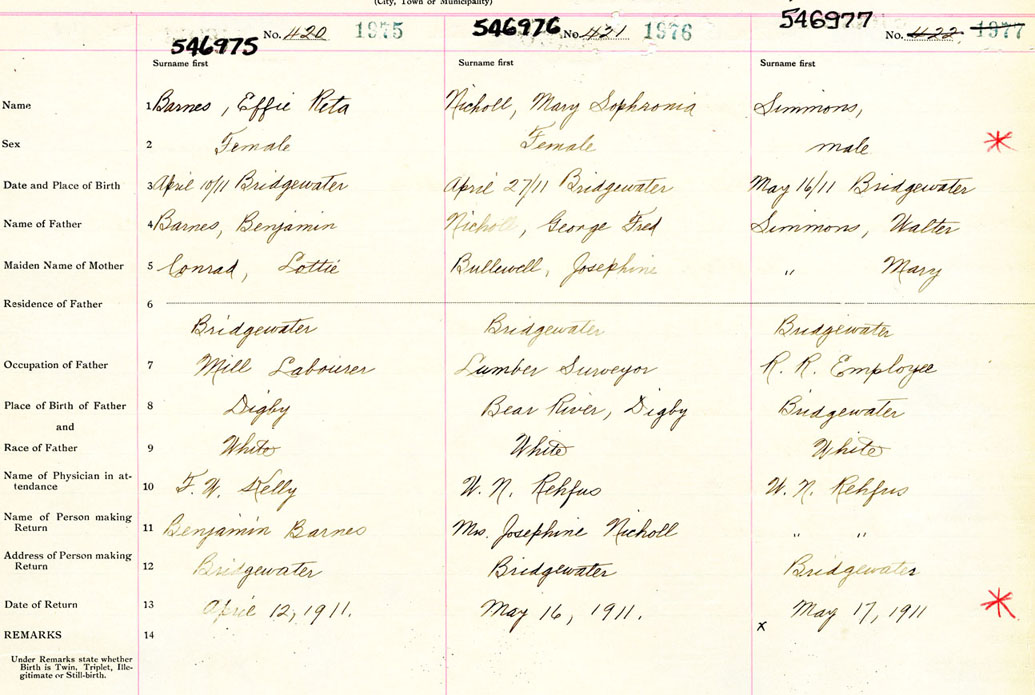 (City, Town or Municipality)
546975 No. 420 1975 546976 No. 421 1976 546977 No. 422 1977
Surname first Surname first Surname first
Name 1 Barnes, Effie Reta Nicholl, Mary Sophronia Simmons,
Sex 2 Female Female male
Date and Place of Birth 3 April 10/11 Bridgewater April 27/11 Bridgewater May 16/11 Bridgewater
Name of Father 4 Barnes, Benjamin Nicholl, George Fred Simmons, Walter
Maiden Name of Mother 5 Conrad, Lottie Bullewell, Josephine " Mary
Residence of Father 6
Bridgewater Bridgewater Bridgewater
Occupation of Father 7 Mill Labourer Lumber Surveyor R. R. Employee
Place of Birth of Father 8 Digby Bear River, Digby Bridgewater
and
Race of Father 9 White White White
Name of Physician in at-
tendance 10 F. W. Kelly W. N. Rehfus W. N. Rehfus
Name of Person making
Return 11 Benjamin Barnes Mrs. Josephine Nicholl " "
Address of Person making
Return 12 Bridgewater Bridgewater Bridgewater
Date of Return 13 April 12, 1911. May 16, 1911. May 17, 1911
REMARKS 14 x
Under Remarks state whether
Birth is Twin, Triplet, Ille-
gitimate or Still-birth.